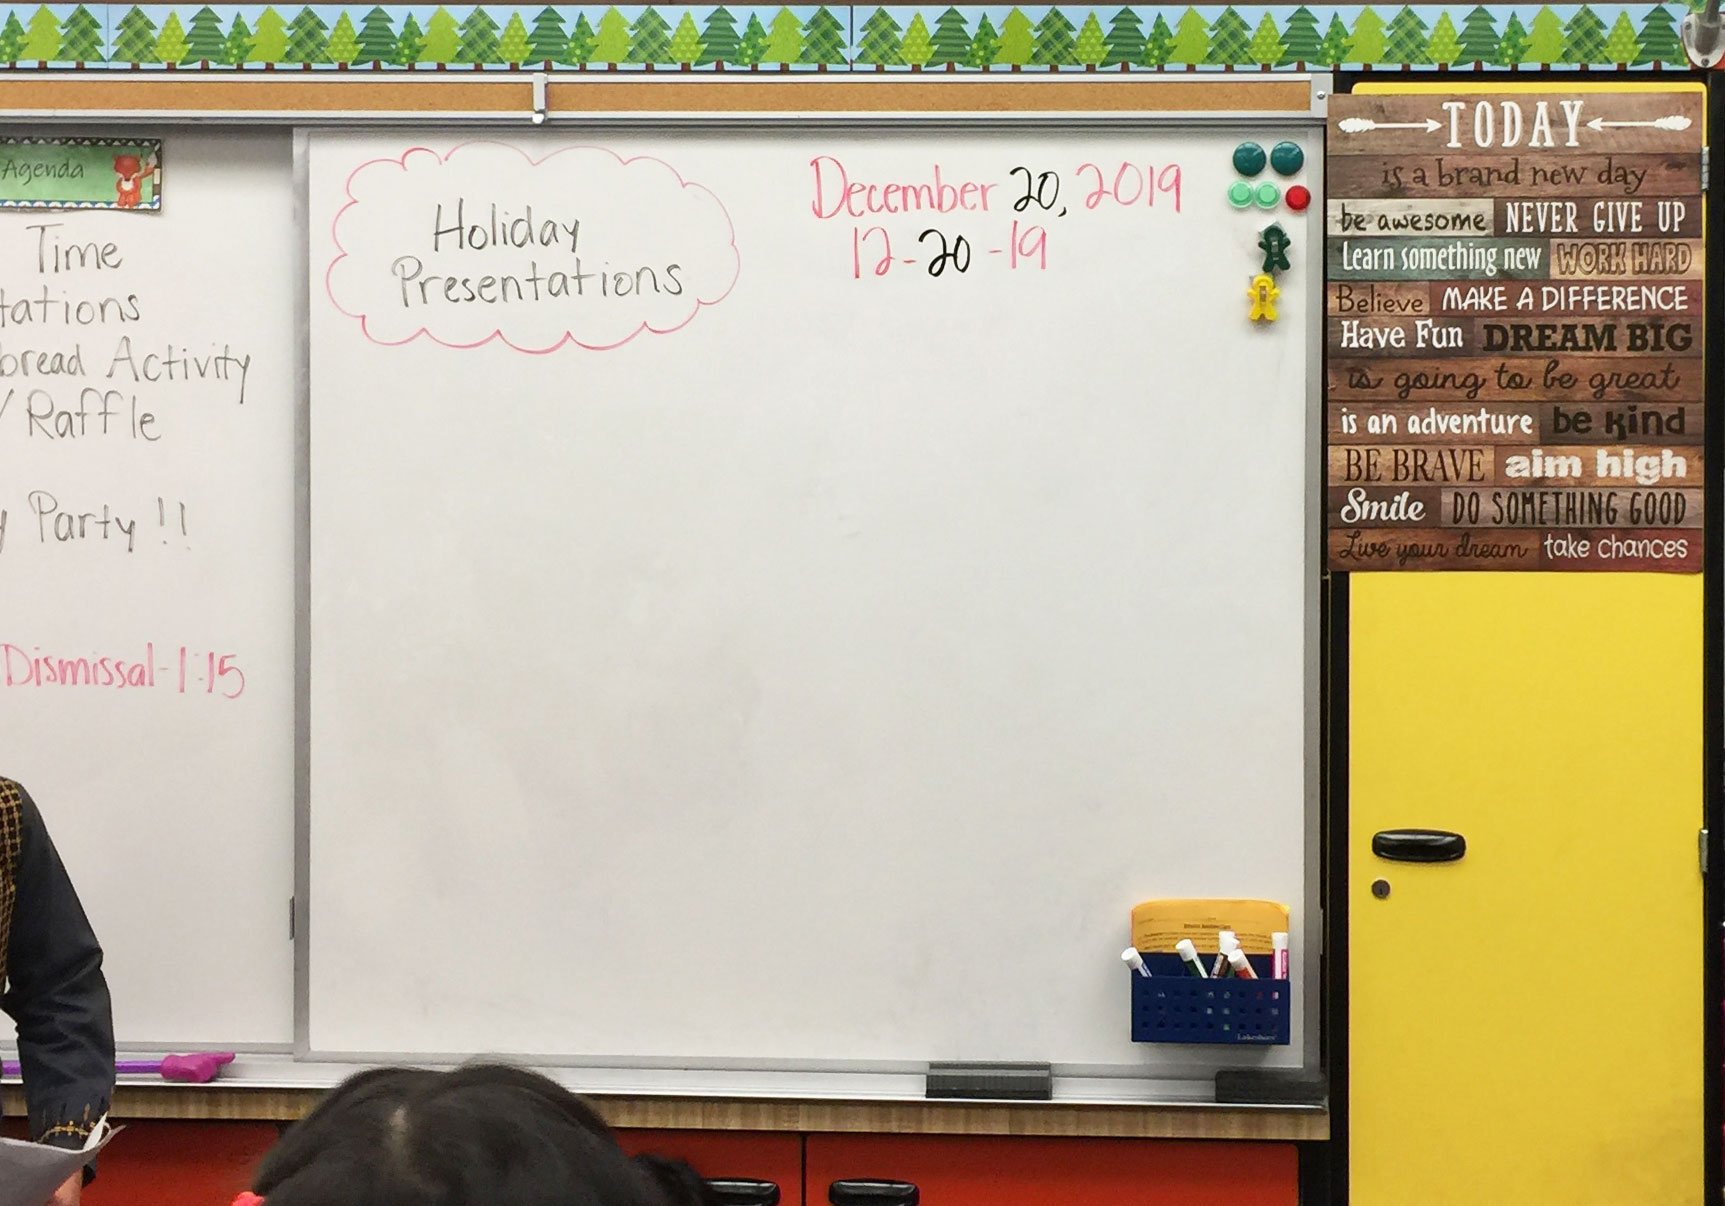 Agenda
Time
tations
bread Activity
/ Raffle
y Party !!
Dismissal-1:15
Holiday
Presentations
December 20, 2019
12-20-19
TODAY
is a brand new day
be awesome NEVER GIVE UP
Learn something new WORK HARD
Believe MAKE A DIFFERENCE
Have Fun DREAM BIG
is going to be great
is an adventure be kind
BE BRAVE aim high
Smile DO SOMETHING GOOD
Live your dream take chances
Lakeshore